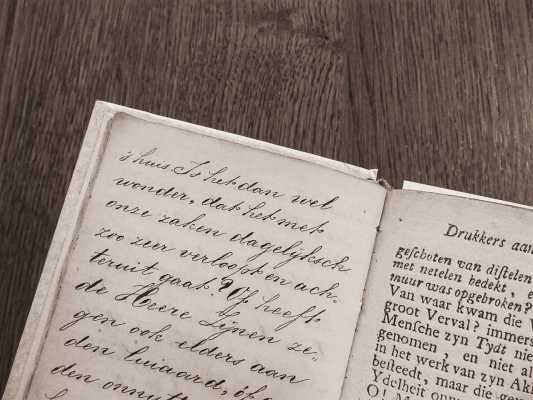 's huis. Is het dan wel
wonder, dat het met
onze zaken dagelijksch
zoo zeer verloopt en ach-
teruit gaat? Of heeft
de Heere Zijnen ze-
gen ook elders aan
den luiaard, óf aan
den onnutt
Drukkers aan
geſchoten van diſtelen
met netelen bedekt, e
muur was opgebroken?
Van waar kwam die V
groot Verval? immers
Menſche zyn Tydt nie
genomen, en niet al
in het werk van zyn Akk
beſteedt, maar die gev
Ydelheit onn
O! M